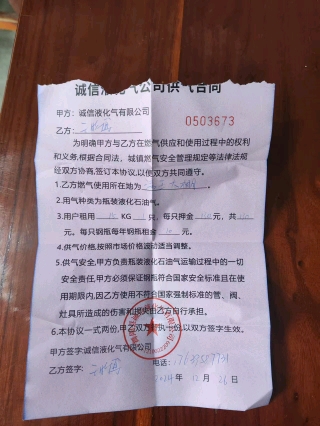 诚信液化气公司供气合同
甲方：诚信液化气有限公司
0503673
乙方：
为明确甲方与乙方在燃气供应和使用过程中的权利
和义务,根据合同法，城镇燃气安全管理规定等法律法规
经双方协商,签订本协议,以使双方共同遵守。
1.乙方燃气使用所在地为
2.用气种类为瓶装液化石油气。
3.用户租用 KG 只，每只押金 元，共
元,每只钢瓶每年钢瓶租金 元。
4.供气价格,按照市场价格波动适当调整。
5.供气安全,甲方负责瓶装液化石油气运输过程中的一切
安全责任,甲方必须保证钢瓶符合国家安全标准且在使
用期限内,因乙方使用不符合国家强制标准的管、阀、
灶具所造成的伤害和损失由乙方自行承担。
6.本协议一式两份,甲乙双方各执一份,以双方签字生效。
甲方签字:诚信液化气有限公司
乙方签字： 电话：
2024 年 12 月 26 日